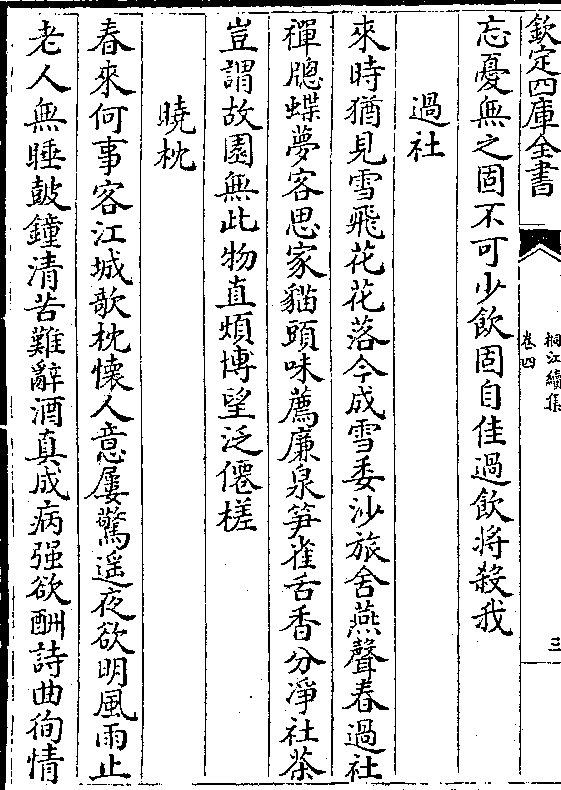 欽定四庫全書
桐江續集
卷四
三
忘憂無之固不可少飲固自佳過飲將殺我
過社
來時猶見雪飛花花落今成雪委沙旅舍燕聲春過社
禪牕蝶夢客思家貓頭味薦廉泉笋雀舌香分淨社茶
豈謂故園無此物直煩博望泛僊槎
曉枕
春來何事客江城欹枕懐人意屢驚遥夜欲明風雨止
老人無睡鼓鐘清苦難辭酒真成病强欲酬詩曲徇情